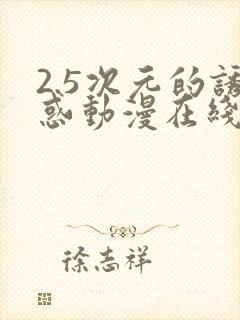 2.5次元的誘
惑動漫在綫
徐志祥